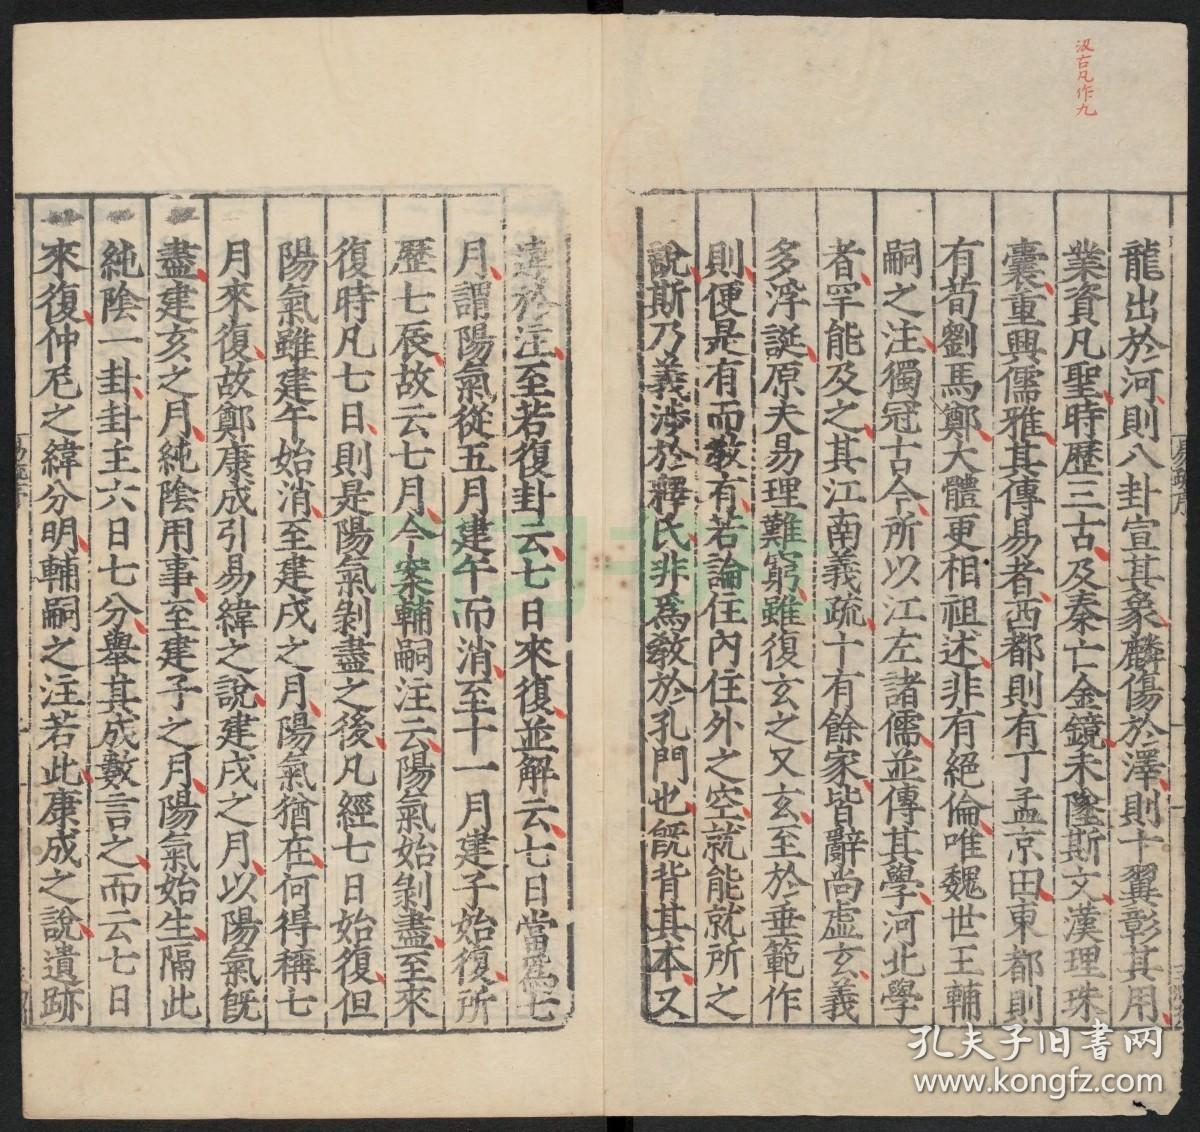 汲古凡作九
龍出於河則八卦宣其象麟傷於澤則十翼彰其用
業資凡聖時歷三古及秦亡金鏡未墜斯文漢理珠
囊重興儒雅其傳易者西都則有丁孟京田東都則
有荀劉馬鄭大體更相祖述非有絕倫唯魏世王輔
嗣之注獨冠古今所以江左諸儒並傳其學河北學
者罕能及之其江南義疏十有餘家皆辭尚虛玄義
多浮誕原夫易理難窮雖復玄之又玄至於垂範作
則便是有而教有若論住內住外之空就能就所之
說斯乃義涉於釋氏非為教於孔門也既背其本又
違於注至若復卦云七日來復並解云七日當為七
月謂陽氣從五月建午而消至十一月建子始復所
歷七辰故云七月今案輔嗣注云陽氣始剝盡至來
復時凡七日則是陽氣剝盡之後凡經七日始復但
陽氣雖建午始消至建戌之月陽氣猶在何得稱七
月來復故鄭康成引易緯之說建戌之月以陽氣既
盡建亥之月純陰用事至建子之月陽氣始生隔此
純陰一卦卦主六日七分舉其成數言之而云七日
來復仲尼之緯分明輔嗣之注若此康成之說遺跡
孔夫子旧书网
www.kongfz.com